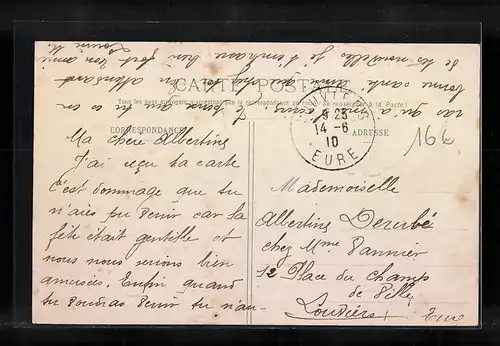 CARTE POSTALE
Tous les pays étrangers n'acceptent pas la correspondance au recto (se renseigner à la Poste)
CORRESPONDANCE
ADRESSE
LOUVIERS
9 25
14 -6
10
EURE
166
Ma chere Albertine
J'ai reçu ta carte
C'est dommage que tu
n'ais pu venir car la
fête était gentille et
nous nous serions bien
amusées. Enfin quand
tu voudras venir tu n'au-
ras qu'à
de tes nouvelles je t'embrasse bien fort ton amie
Mademoiselle
Albertine Derubé
chez Mme Vannier
12 Place du Champ
de Ville
Louviers
Eure